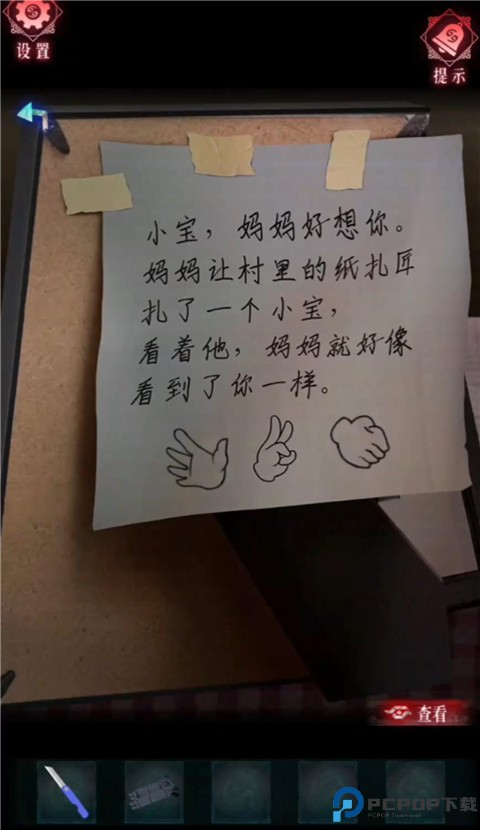 设置
提示
小宝，妈妈好想你。
妈妈让村里的纸扎匠
扎了一个小宝，
看着他，妈妈就好像
看到了你一样。
查看
PCPOP下载
PCPOP Download